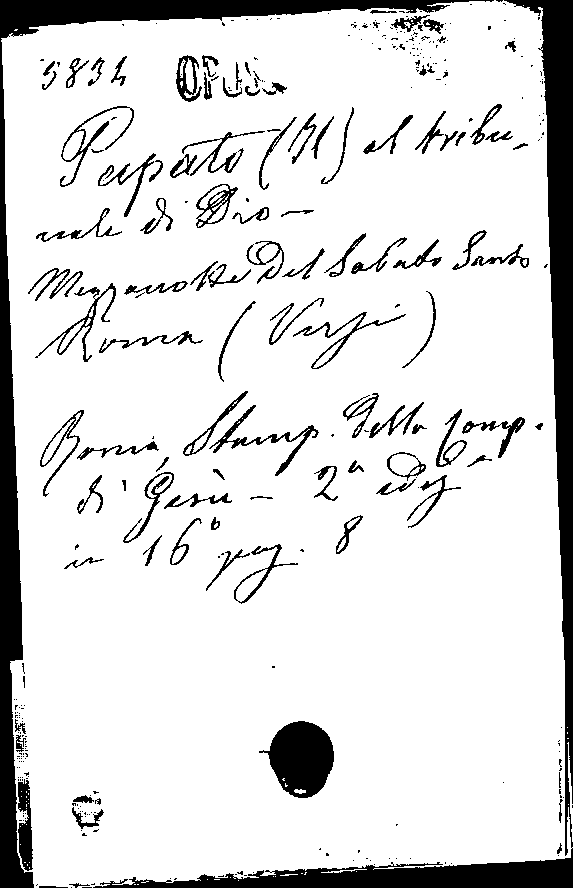 5834 OPUS.
Papato (Il) al tribu-
nale di Dio -
Mezzanotte del Sabato Santo.
Roma (Versi)
Roma, Stamp. della Comp.
di Gesù - 2a ediz
in 16° pag. 8